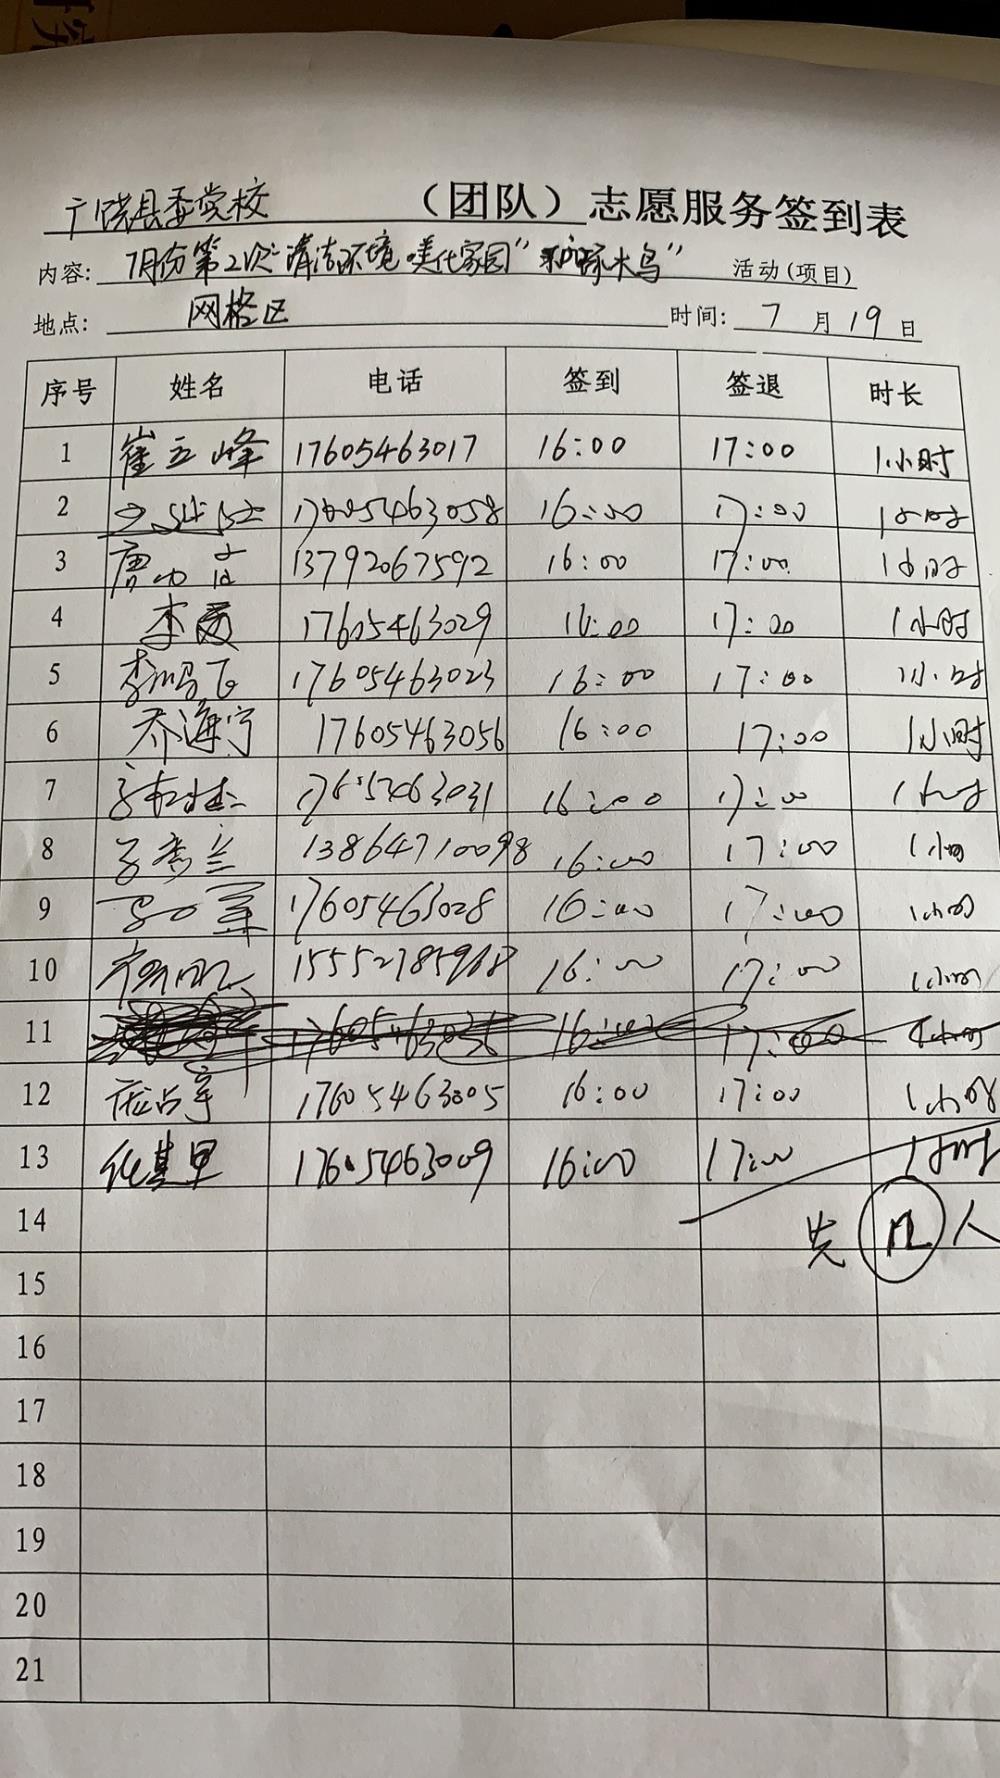 广饶县委党校 （团队）志愿服务签到表
内容: 7月份第2次"清洁环境 美化家园" 啄木鸟" 活动(项目)
地点: 网格区 时间: 7 月 19 日
序号 姓名 电话 签到 签退 时长
1 崔立峰 17605463017 16:00 17:00 1小时
2 17605463058 16:00 17:00 1小时
3 13792067592 16:00 17:00 1小时
4 李 17605463029 16:00 17:00 1小时
5 李鹏飞 17605463023 16:00 17:00 1小时
6 乔海宁 17605463056 16:00 17:00 1小时
7 17605463031 16:00 17:00 1小时
8 13864710098 16:00 17:00 1小时
9 17605463028 16:00 17:00 1小时
10 15552785968 16:00 17:00 1小时
11 16:00 17:00 1小时
12 17605463005 16:00 17:00 1小时
13 17605463009 16:00 17:00 1小时
14 12 人
15
16
17
18
19
20
21